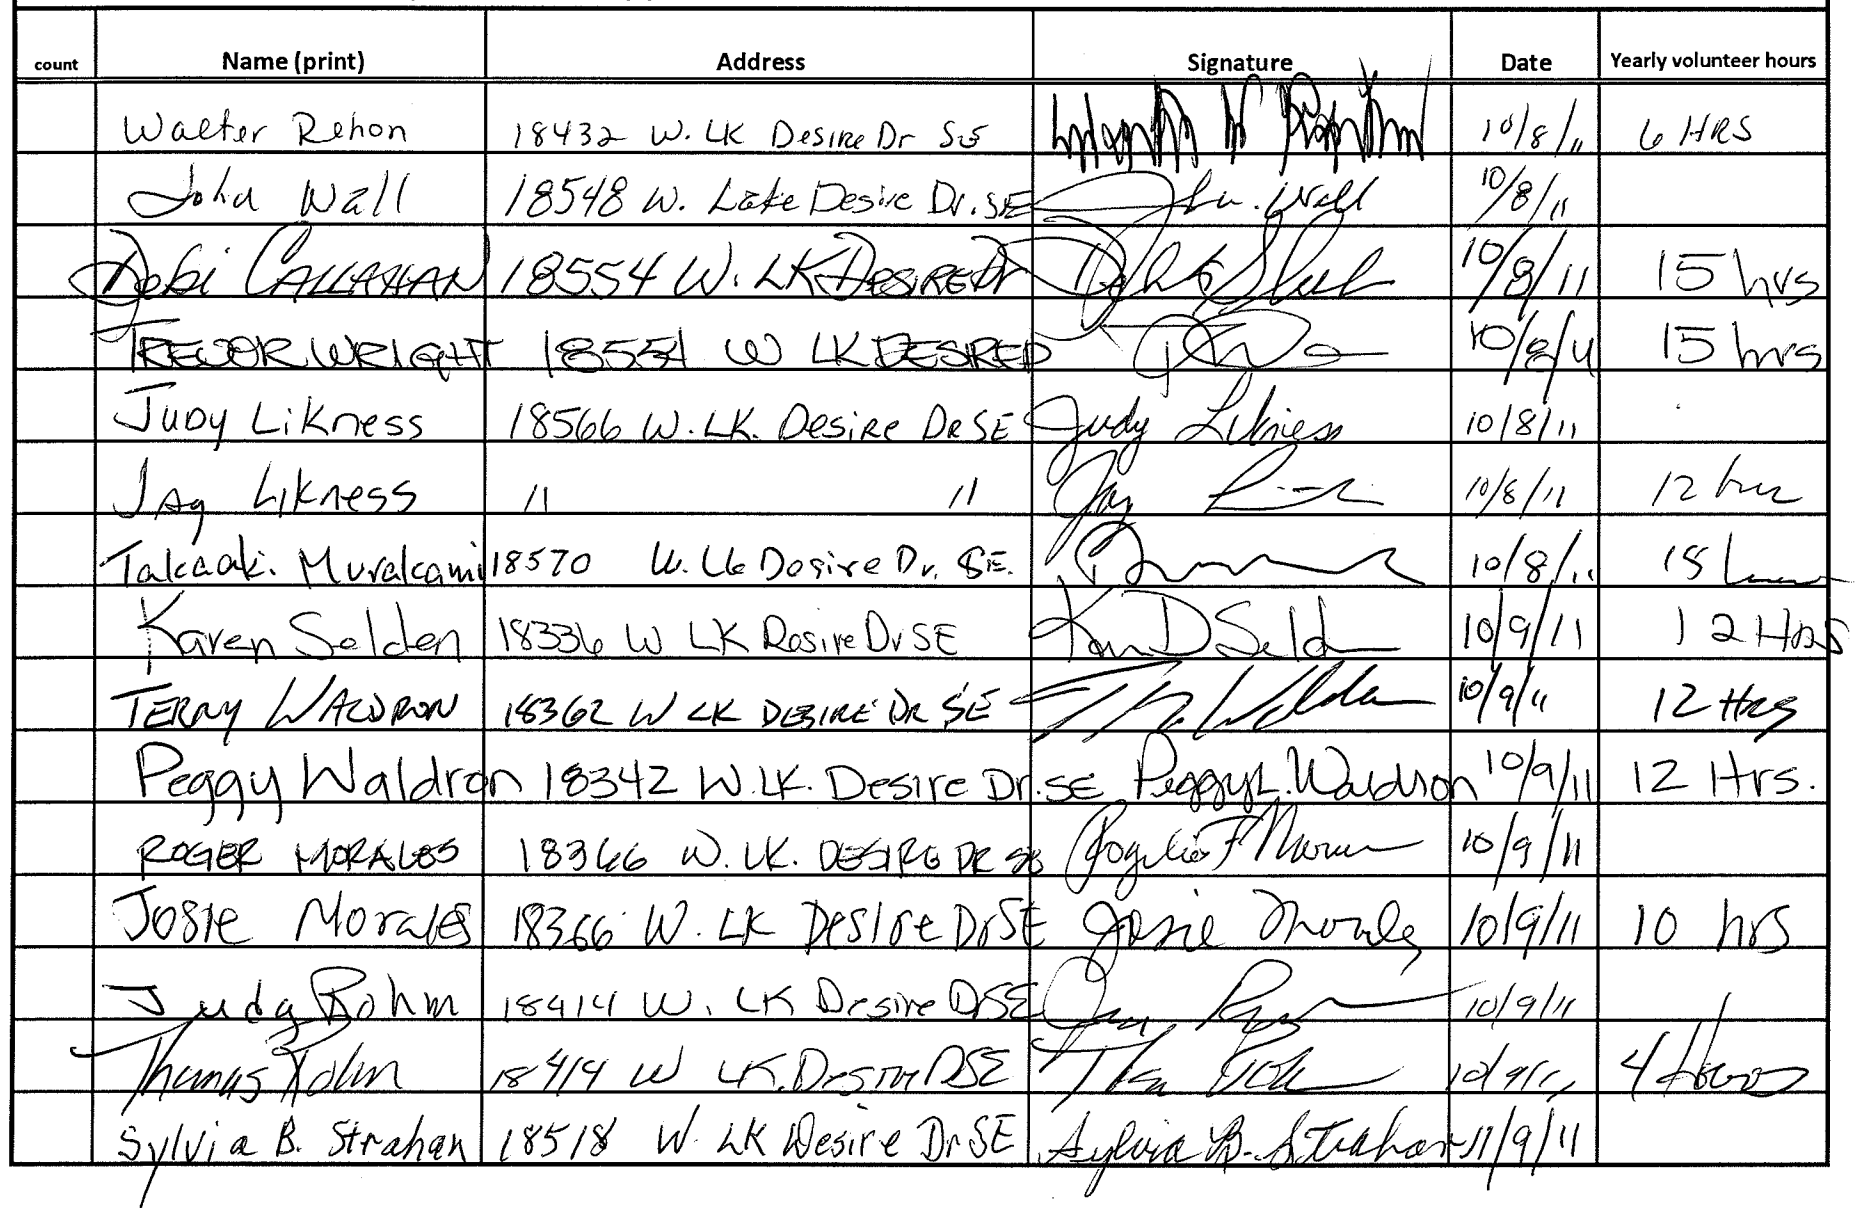 count Name (print) Address Signature Date Yearly volunteer hours
Walter Rehon 18432 W. LK Desire Dr SE 10/8/11 6 HRS
John Wall 18548 W. Lake Desire Dr. SE John Wall 10/8/11
Debi CALLAHAN 18554 W. LK DESIRE Dr 10/8/11 15 hrs
TREVOR WRIGHT 18554 W LK DESIRE D 10/8/11 15 hrs
Judy Likness 18566 W. LK. Desire Dr SE Judy Likness 10/8/11
Jay Likness 11 11 Jay 10/8/11 12 hrs
Takaaki Murakami 18570 W. Lk Desire Dr. SE. 10/8/11 15
Karen Selden 18336 W LK Desire Dr SE 10/9/11 12 Hrs
TERRY WALDRON 18362 W LK DESIRE DR SE 10/9/11 12 Hrs
Peggy Waldron 18342 W. LK. Desire Dr. SE Peggy L. Waldron 10/9/11 12 Hrs.
ROGER MORALES 18366 W. LK. DESIRE DR SE Rogelio F 10/9/11
Josie Morales 18366 W. LK Desire Dr SE Josie Morales 10/9/11 10 hrs
Judy Rohm 18414 W. LK Desire DSE 10/9/11
Thomas Rohm 18414 W LK. Desire DSE 10/9/11 4 Hours
Sylvia B. Strahan 18518 W. LK Desire Dr SE Sylvia B. Strahan 11/9/11